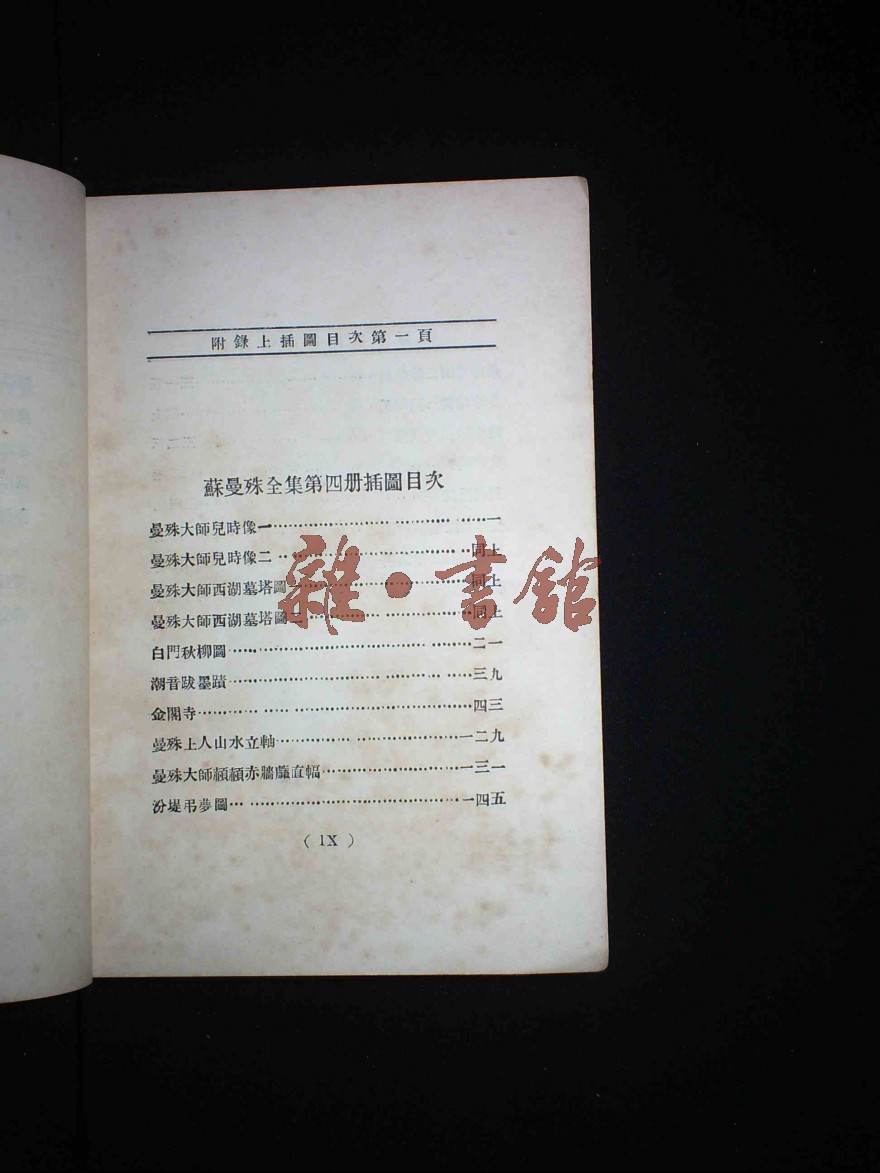 附錄上插圖目次第一頁
蘇曼殊全集第四册插圖目次
曼殊大師兒時像一……………………一
曼殊大師兒時像二……………………同上
曼殊大師西湖墓塔圖一……………………同上
曼殊大師西湖墓塔圖二……………………同上
白門秋柳圖……………………二一
潮音跋墨蹟……………………三九
金閣寺……………………四三
曼殊上人山水立軸……………………一二九
曼殊大師頟頟赤牆靡直幅……………………一三一
汾堤弔夢圖……………………一四五
( IX )
雜·書館